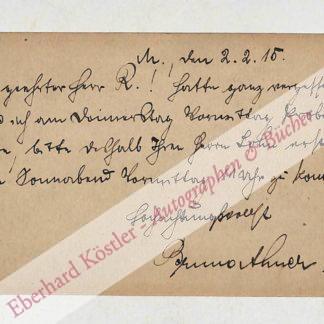 M., den 2. 2. 15.
geehrter Herr R.! Hatte ganz vergessen
ich am Donnerstag Vormittag Probe
bitte deshalb Ihren Herrn Sohn erst
Sonnabend Vormittag 11 Uhr zu kom
Hochachtungsvollst
Bruno Ahner
Eberhard Köstler - Autographen & Bücher